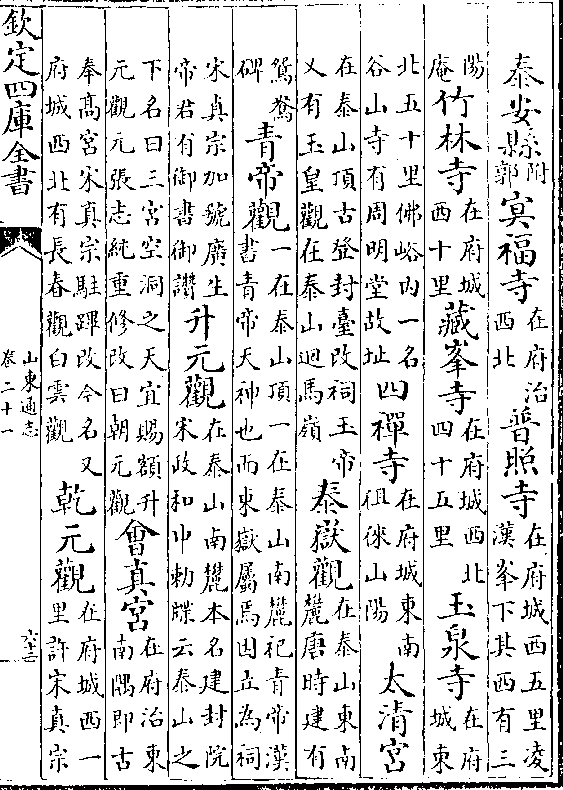 泰安縣附郭冥福寺在府治西北普照寺在府城西五里凌漢峯下其西有三
陽庵竹林寺在府城西十里藏峯寺在府城西北四十五里玉泉寺在府城東
北五十里佛峪内一名谷山寺有周明堂故址四禪寺在府城東南徂徠山陽太清宮
在泰山頂古登封臺改祠玉帝又有玉皇觀在泰山迴馬嶺泰嶽觀在泰山東南麓唐時建有
鴛鴦碑青帝觀一在泰山頂一在泰山南麓祀青帝漢書青帝天神也而東嶽屬焉因立為祠
宋真宗加號廣生帝君有御書御讚升元觀在泰山南麓本名建封院宋政和中勅牒云泰山之
下名曰三宮空洞之天宜賜額升元觀元張志純重修改曰朝元觀會真宮在府治東南隅即古
奉髙宮宋真宗駐蹕改今名又府城西北有長春觀白雲觀乾元觀在府城西一里許宋真宗
欽定四庫全書
山東通志
卷二十一